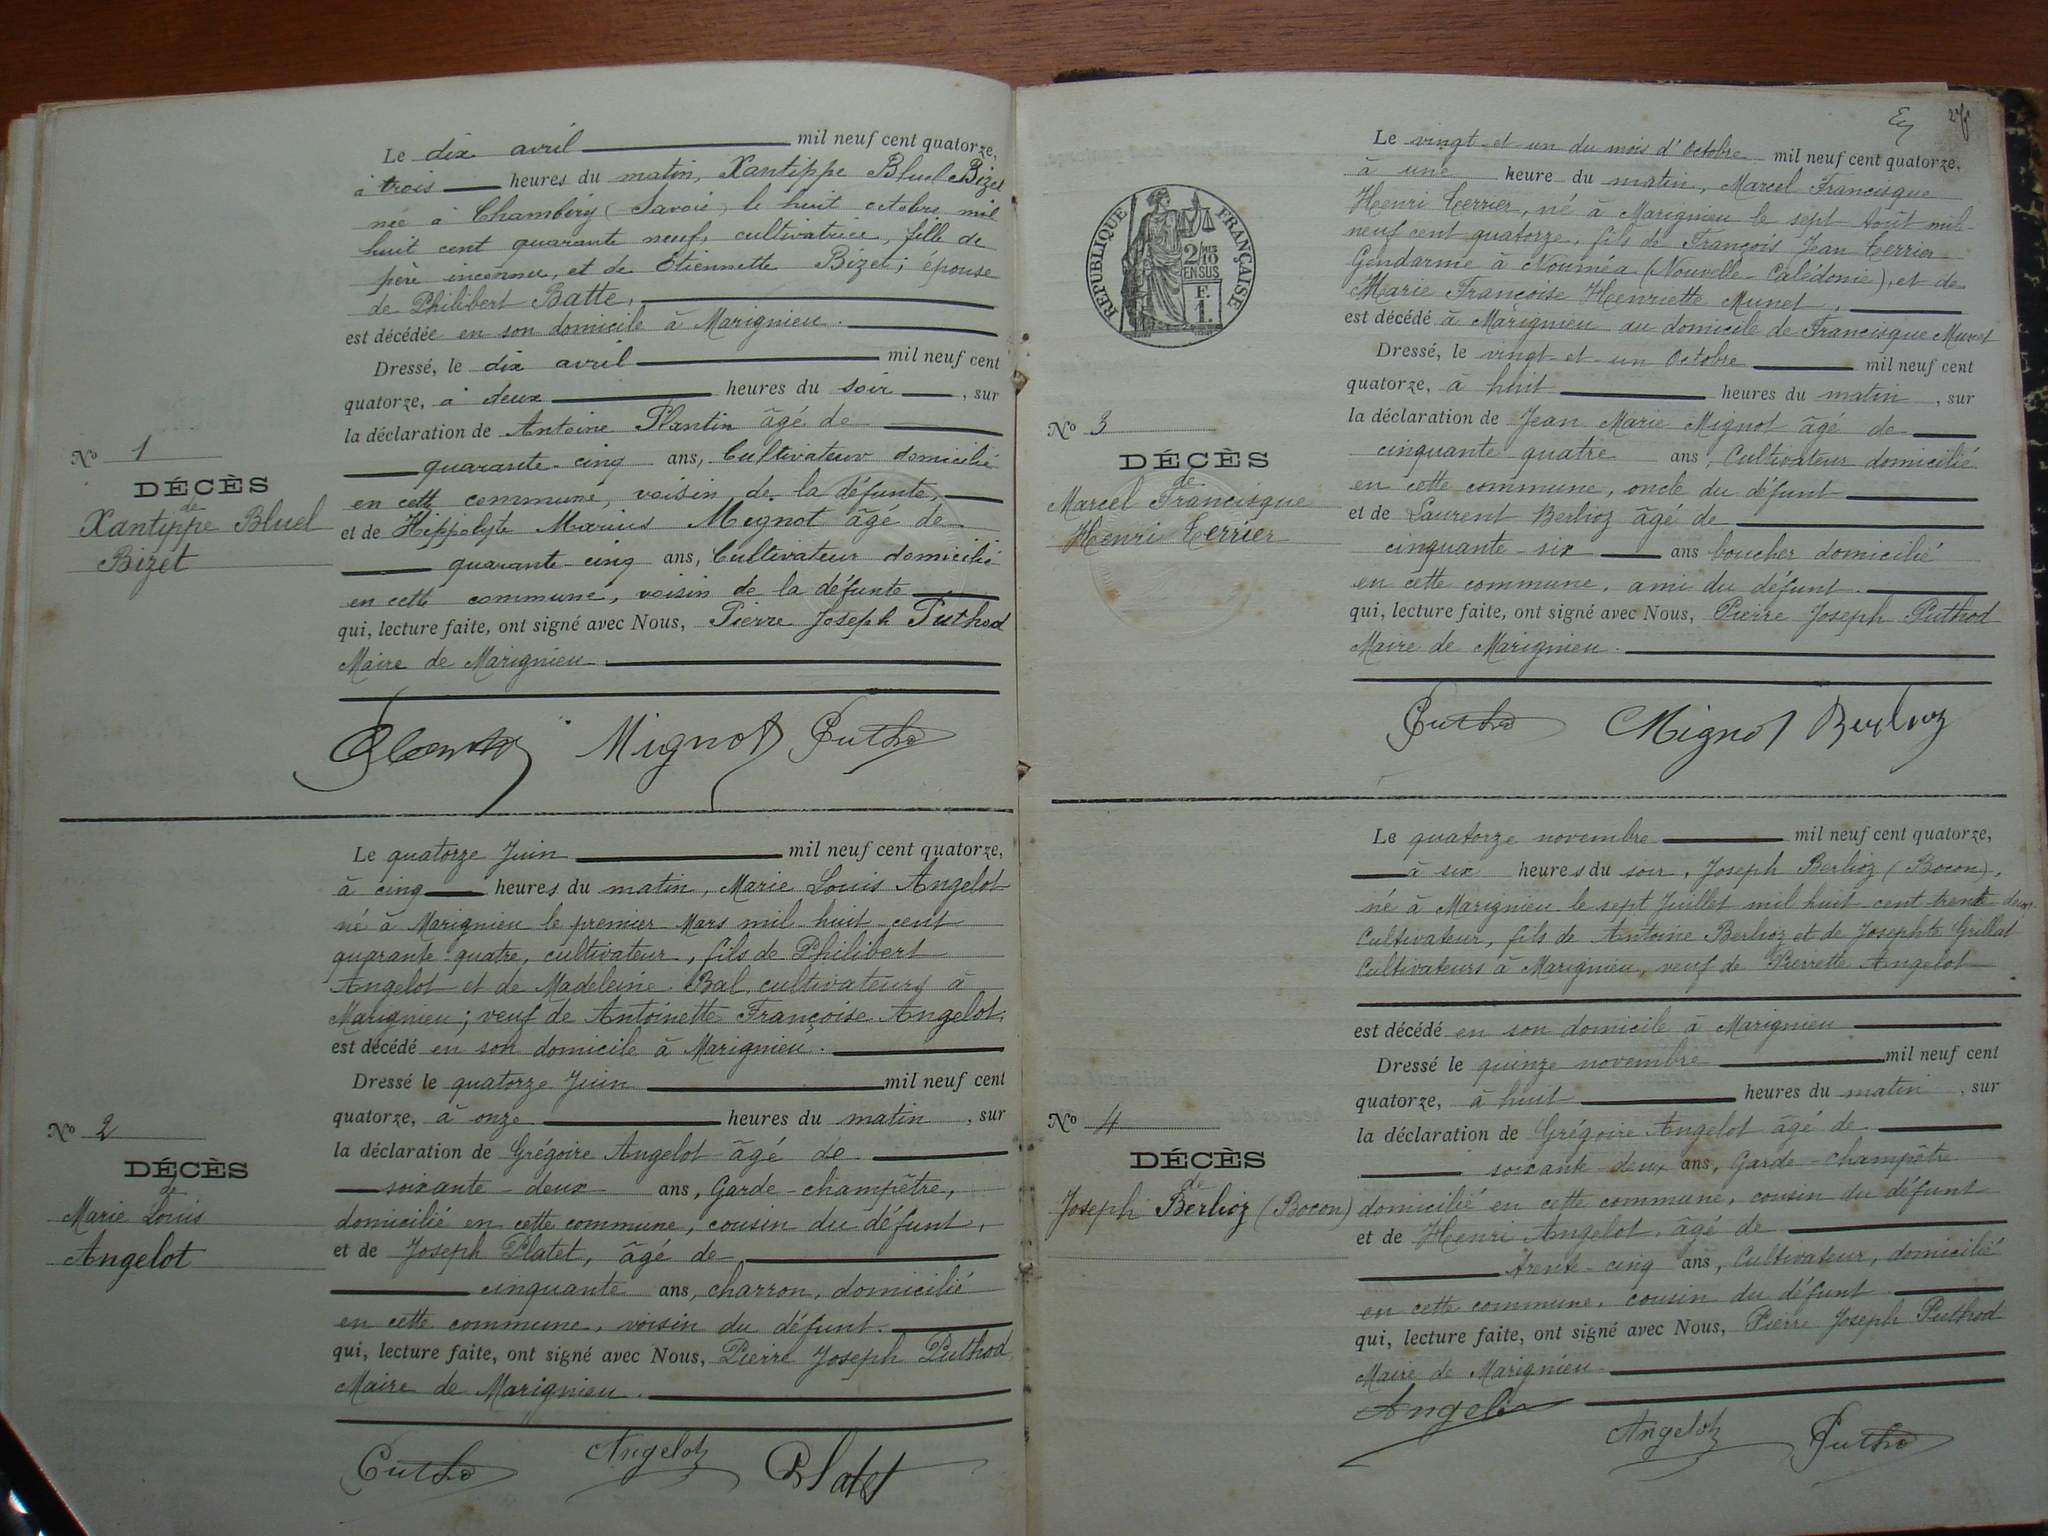 Le dix avril mil neuf cent quatorze,
à trois heures du matin, Xantippe Bluel Bizet
née à Chambéry (Savoie) le huit octobre mil
huit cent quarante neuf, cultivatrice, fille de
père inconnu, et de Etiennette Bizet; épouse
de Philibert Batte,
est décédée en son domicile à Marignieu.
Dressé, le dix avril mil neuf cent
quatorze, à deux heures du soir, sur
la déclaration de Antoine Plantin âgé de
quarante-cinq ans, Cultivateur domicilié
en cette commune, voisin de la défunte,
et de Hippolyte Marius Mignot âgé de
quarante-cinq ans, Cultivateur domicilié
en cette commune, voisin de la défunte
qui, lecture faite, ont signé avec Nous, Pierre Joseph Puthod
Maire de Marignieu.
Nº 1
DÉCÈS
de
Xantippe Bluel
Bizet
Mignot
Le quatorze Juin mil neuf cent quatorze,
à cinq heures du matin, Marie Louis Angelot
né à Marignieu le premier Mars mil huit-cent
quarante-quatre, cultivateur, fils de Philibert
Angelot et de Madeleine Bal, cultivateurs à
Marignieu; veuf de Antoinette Françoise Angelot,
est décédé en son domicile à Marignieu.
Dressé le quatorze Juin mil neuf cent
quatorze, à onze heures du matin, sur
la déclaration de Grégoire Angelot âgé de
soixante-deux ans, Garde-champêtre,
domicilié en cette commune, cousin du défunt,
et de Joseph Platet, âgé de
cinquante ans, charron, domicilié
en cette commune, voisin du défunt.
qui, lecture faite, ont signé avec Nous, Pierre Joseph Puthod
Maire de Marignieu.
Nº 2
DÉCÈS
de
Marie Louis
Angelot
Angelot Platet
RÉPUBLIQUE FRANÇAISE
2/10
EN SUS
F.
1.
Le vingt-et-un du mois d'Octobre mil neuf cent quatorze,
à une heure du matin, Marcel Francisque
Henri Terrier, né à Marignieu le sept Août mil-
neuf cent quatorze, fils de François Jean Terrier
Gendarme à Nouméa (Nouvelle-Calédonie), et de
Marie Françoise Henriette Munet,
est décédé à Marignieu au domicile de Francisque Munet
Dressé, le vingt-et-un Octobre mil neuf cent
quatorze, à huit heures du matin, sur
la déclaration de Jean Marie Mignot âgé de
cinquante quatre ans, Cultivateur domicilié
en cette commune, oncle du défunt
et de Laurent Berlioz âgé de
cinquante-six ans boucher domicilié
en cette commune, ami du défunt.
qui, lecture faite, ont signé avec Nous, Pierre Joseph Puthod
Maire de Marignieu.
Nº 3
DÉCÈS
de
Marcel Francisque
Henri Terrier
Mignot Berlioz
Le quatorze novembre mil neuf cent quatorze,
à six heures du soir, Joseph Berlioz (Bocon),
né à Marignieu le sept Juillet mil huit-cent trente deux
Cultivateur, fils de Antoine Berlioz et de Josephte Grillat
Cultivateurs à Marignieu, veuf de Pierrette Angelot
est décédé en son domicile à Marignieu
Dressé le quinze novembre mil neuf cent
quatorze, à huit heures du matin, sur
la déclaration de Grégoire Angelot âgé de
soixante-deux ans, Garde-champêtre
domicilié en cette commune, cousin du défunt
et de Henri Angelot, âgé de
trente-cinq ans, Cultivateur, domicilié
en cette commune, cousin du défunt.
qui, lecture faite, ont signé avec Nous, Pierre Joseph Puthod
Maire de Marignieu
Nº 4
DÉCÈS
de
Joseph Berlioz (Bocon)
Angelot
Angelot